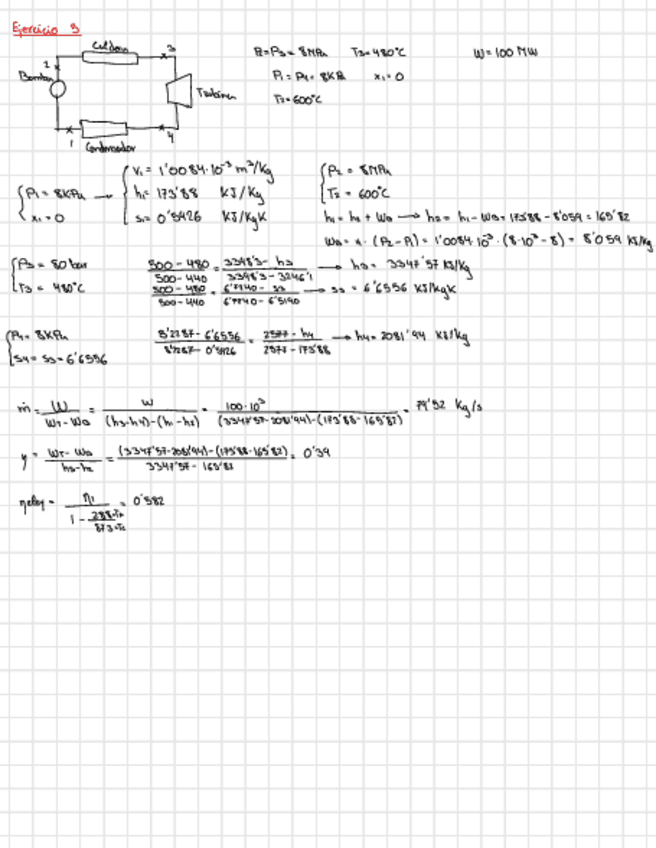 Ejercicio 3
Caldera
3
2
Bomba
Turbina
1
Condensador
4
P2=P3= 8MPa T3=480°C W=100 MW
P1=P4= 8KPa x1=0
T2=600°C
P1=8KPa
x1=0
v1= 1'0084·10⁻³ m³/Kg
h1= 173'88 KJ/Kg
s1= 0'5926 KJ/KgK
P2= 8MPa
T2= 600°C
h1= h2 + WB → h2= h1-WB= 173'88-8'059=165'82
(P2-P1)= 1'0084·10⁻³·(8·10³-8)= 8'059 KJ/Kg
P3= 80 bar
T3= 480°C
500-480 / 500-440 = 3398'3-h3 / 3398'3-3246'1 → h3= 3347'57 KJ/Kg
500-480 / 500-440 = 6'7240-s3 / 6'7240-6'5190 → s3= 6'6556 KJ/KgK
P4=8KPa
s4=s3=6'6556
8'2287-6'6556 / 8'2287-0'5926 = 2577-h4 / 2577-173'88 → h4=2081'94 KJ/Kg
ṁ= W / WT-WB = W / (h3-h4)-(h1-h2) = 100·10³ / (3347'57-2081'94)-(173'88-165'82) = 79'52 Kg/s
η= WT-WB / h3-h2 = (3347'57-2081'94)-(173'88-165'82) / 3347'57-165'82 = 0'39
= η1 / 1- 288 / 873 = 0'582